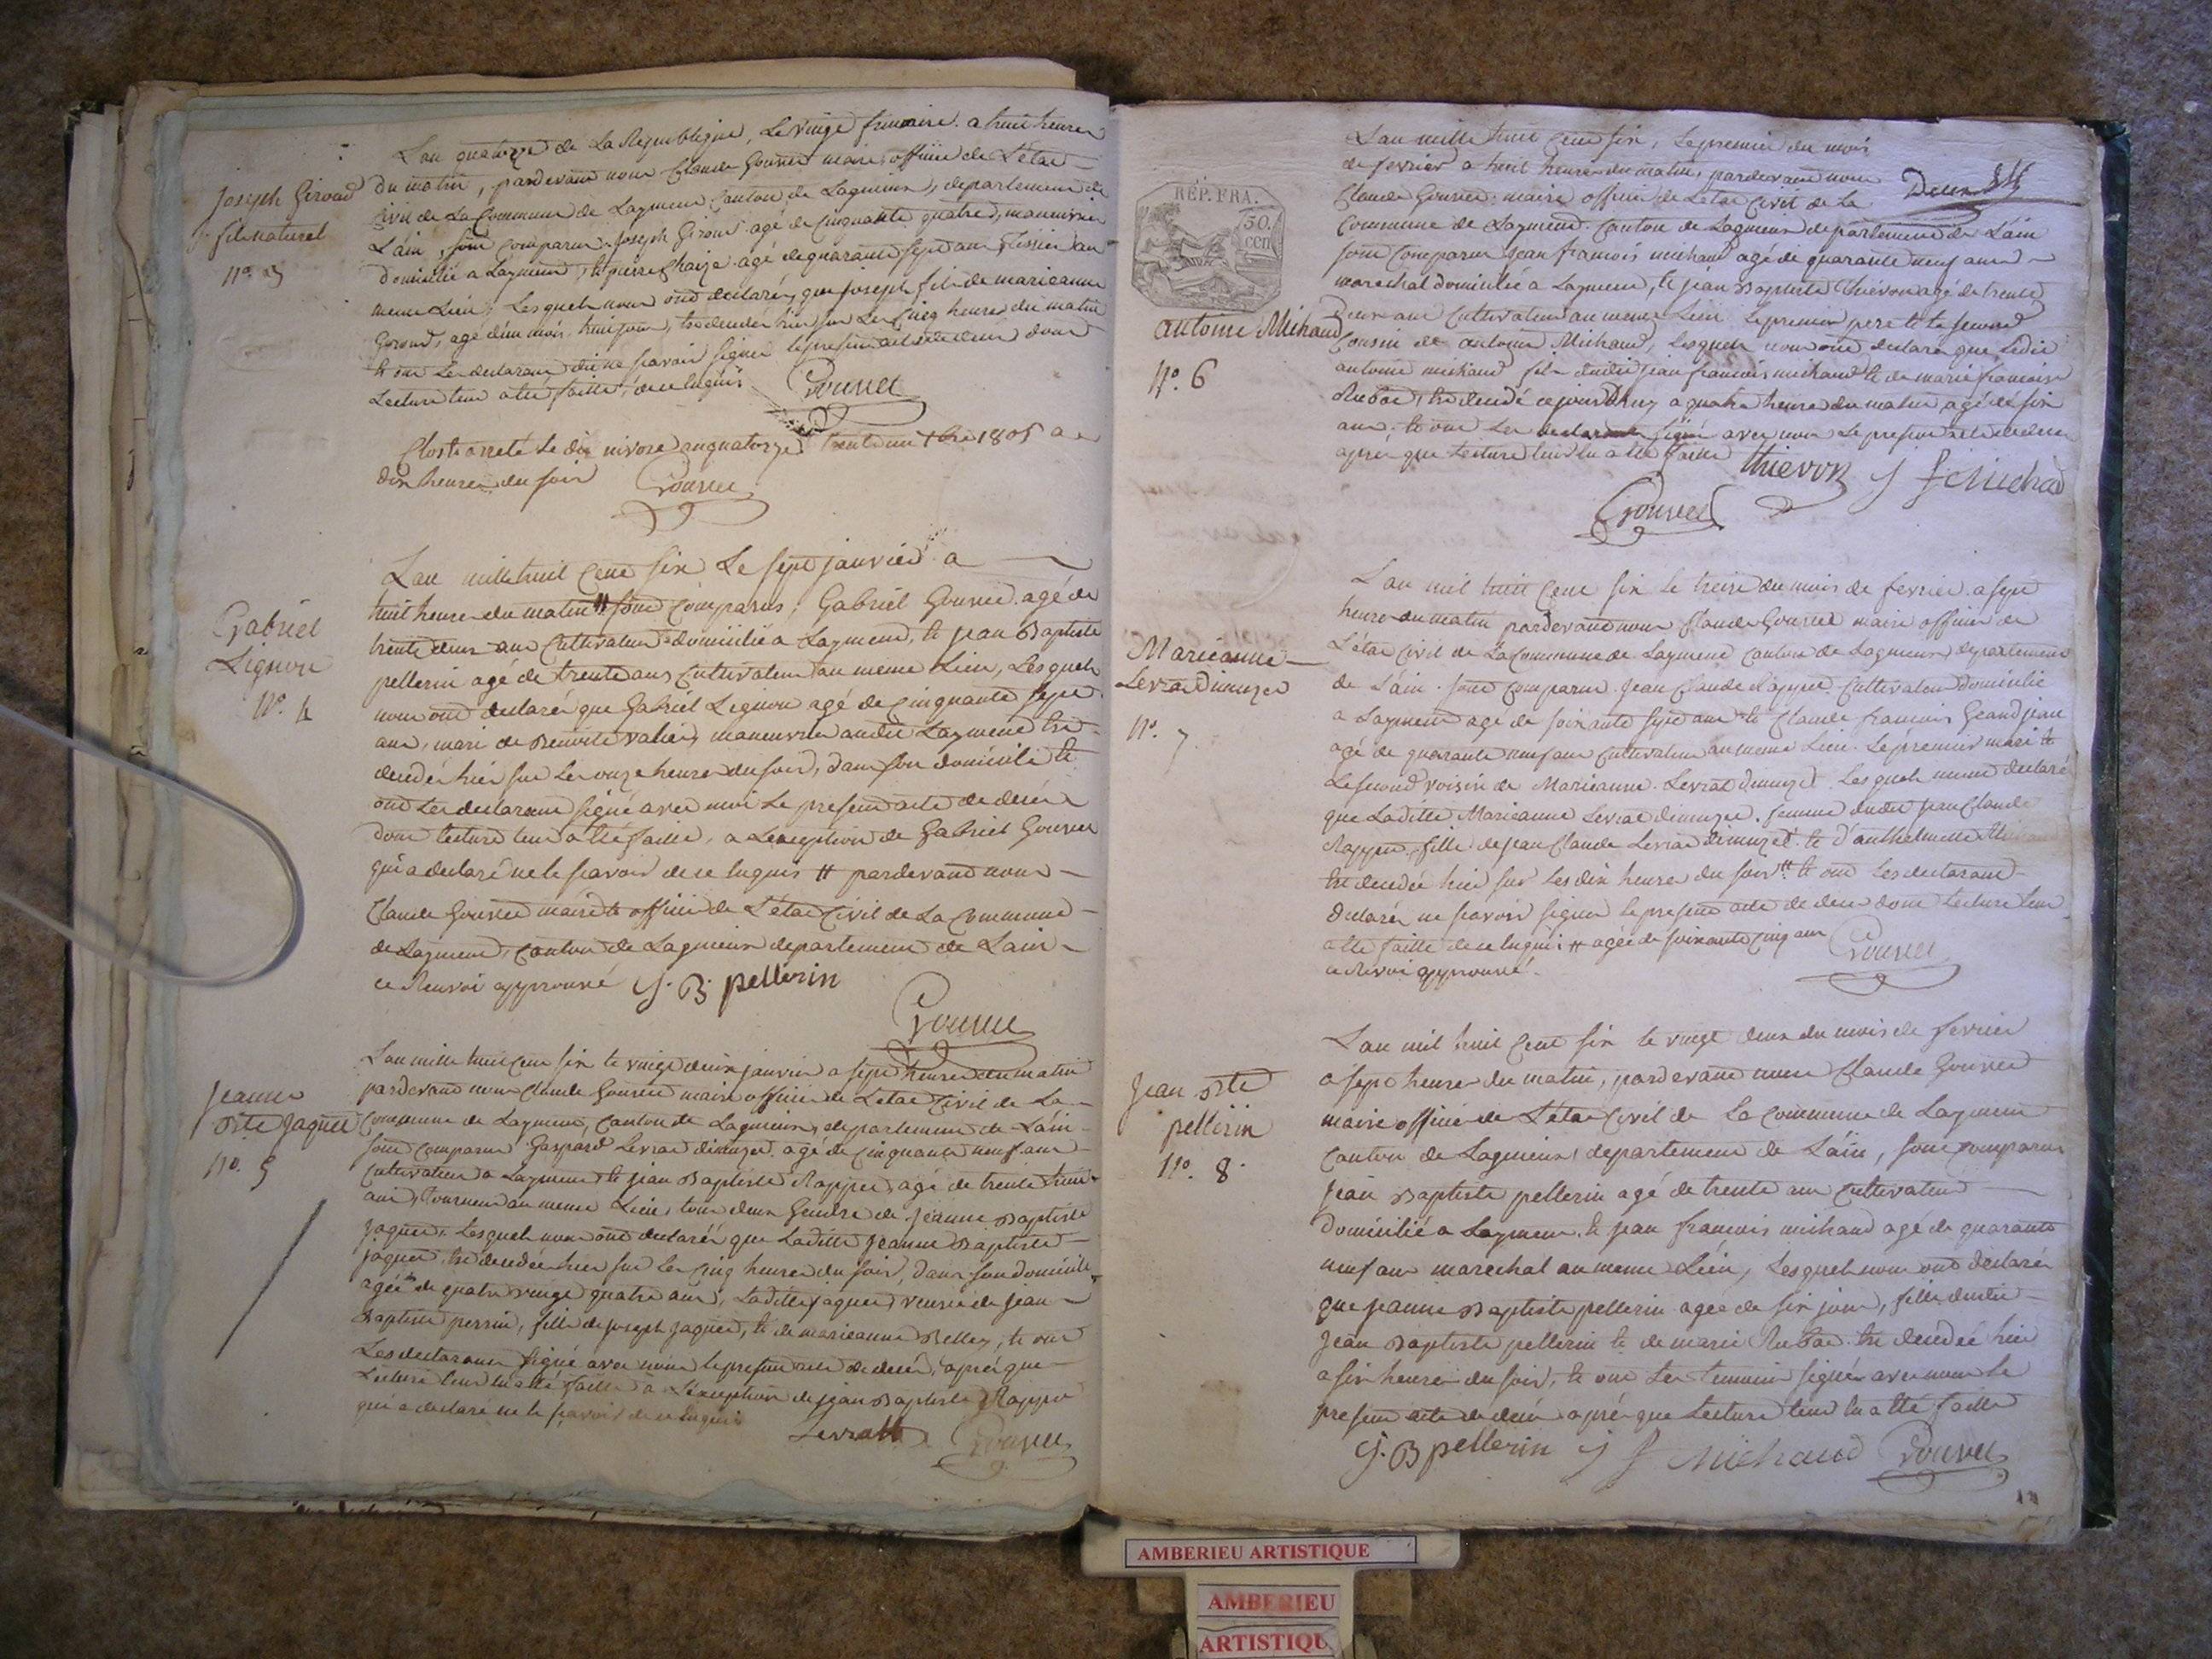 Joseph Giroud
fils naturel
n°. 3
Lan quatorze de La Republique, Le vingt frimaire a huit heures
du matin, pardevant nous Claude Gourru maire officier de L'état
Civil de La Commune de Laymend Canton de Lagnieux, departement de
Lain, sont comparus Joseph Giroud agé de Cinquante quatre, maneuvrier
domicilié a Laymend, et pierre Chaize agé de quarante sept ans tissier au
meme Lieu, Lesquels nous ont declarés que joseph fils de marieanne
Giroud, agé d'un mois huit jours, est decedé hier sur Les Cinq heures du matin
et ont Les declarants dit ne scavoir signer le present acte de decés dont
Lecture leur a été faitte, de ce Enquis
Gourru
Clos et arreté Le dix nivose an quatorze trente un xbre 1805 a
dix heures du soir Gourru
Gabriel
Lignon
n°. 4
Lan mille huit Cent six Le sept janvier a
huit heures du matin # sont comparus, Gabriel Gourru agé de
trente deux ans Cultivateur domicilié a Laymend, et jean Baptiste
pellerin agé de trente ans Cultivateur au meme Lieu, Lesquels
nous ont declarés que Gabriel Lignon agé de Cinquante sept
ans, mari de Benoite valier, maneuvrier audit Laymend est
decedé hier sur Les onze heures du soir, dans son domicile et
ont Les declarants signé avec moi Le present acte de decés
dont Lecture leur a été faitte, a L'exeption de Gabriel Gourru
qui a declaré ne le scavoir de ce Enquis # pardevant nous
Claude Gourru maire et officier de L'état Civil de La Commune
de Laymend, Canton de Lagnieux departement de Lain
ce Renvoi approuvé J. B. pellerin
Gourru
Jeanne
Bte Jaquet
n°. 5
Lan mille huit Cent six le vingt deux janvier a sept heures du matin
pardevant nous Claude Gourru maire officier de L'état Civil de La
Commune de Laymend, Canton de Lagnieux, departement de Lain
sont comparus Gaspard Levrat dimuzet agé de Cinquante neuf ans
Cultivateur a Laymend et jean Baptiste Rappet, agé de trente huit
ans, tourneur au meme Lieu, tous deux Gendre de Jeanne Baptiste
Jaquet, Lesquels nous ont declarés que Laditte Jeanne Baptiste
jaquet est decedée hier sur Les Cinq heures du soir, dans son domicile
agée de quatre vingt quatre ans, Laditte jaquet veuve de Jean
Baptiste perrin, fille de joseph Jaquet, et de marieanne Belley, et ont
Les declarants signé avec nous le present acte de decés, aprés que
Lecture leur en a été faitte a L'exception de jean Baptiste Rappet
qui a declaré ne le scavoir de ce Enquis
Levratt Gourru
RÉP. FRA.
50.
cen
Deux
antoine Michaud
n°. 6
Lan mille huit Cent six, Le premier du mois
de fevrier a huit heures du matin, pardevant nous
Claude Gourru maire officier de L'état Civil de La
Commune de Laymend Canton de Lagnieux departement de Lain
sont comparus Jean francois michaud agé de quarante neuf ans
marechal domicilié a Laymend, et jean Baptiste thiévon agé de trente
deux ans Cultivateur au meme Lieu Le premier pere et Le second
Cousin de antoine Michaud, Lesquels nous ont declarés que Ledit
antoine michaud fils dudit jean francois michaud et de marie francoise
Rubod, est decedé ce jourdhuy a quatre heures du matin, agé de six
ans, et ont Les declarants signé avec nous Le present acte de decés
aprés que Lecture leur en a été faitte thievon J f Michaud
Gourru
Marieanne
Levrat dimuzet
n°. 7
Lan mil huit Cent six le treize du mois de fevrier a sept
heures du matin pardevant nous Claude Gourru maire officier de
L'état Civil de La Commune de Laymend Canton de Lagnieux departement
de L'ain. sont comparus Jean Claude Rappet Cultivateur domicilié
a Laymend agé de soixante sept ans et Claude francois Grandjean
agé de quarante neuf ans Cultivateur au meme Lieu. Le premier mari et
Le second voisin de Marieanne Levrat dimuzet Lesquels nous declaré
que Laditte Marieanne Levrat dimuzet femme dudit jean Claude
Rappet, fille de jean Claude Levrat dimuzet et d'anthelmette
est decedée hier sur Les dix heures du soir # et ont Les declarants
declarés ne scavoir signer le present acte de deces dont Lecture leur
a été faitte de ce Enquis # agée de soixante Cinq ans
ce Renvoi approuvé. Gourru
Jean Bte
pellerin
n°. 8
Lan mil huit Cent six le vingt deux du mois de fevrier
a sept heures du matin, pardevant nous Claude Gourru
maire officier de L'état Civil de La Commune de Laymend
Canton de Lagnieux, departement de L'ain, sont comparus
Jean Baptiste pellerin agé de trente ans Cultivateur
domicilié a Laymend et jean francois michaud agé de quarante
neuf ans marechal au meme Lieu, Lesquels nous ont declarés
que jeanne Baptiste pellerin agée de six jours, fille dudit
Jean Baptiste pellerin et de marie Rubod est decedée hier
a six heures du soir, et ont Les temoins signés avec nous Le
present acte de decés aprés que Lecture leur en a été faitte
J. B pellerin J f Michaud Gourru
AMBERIEU ARTISTIQUE
AMBERIEU
ARTISTIQU